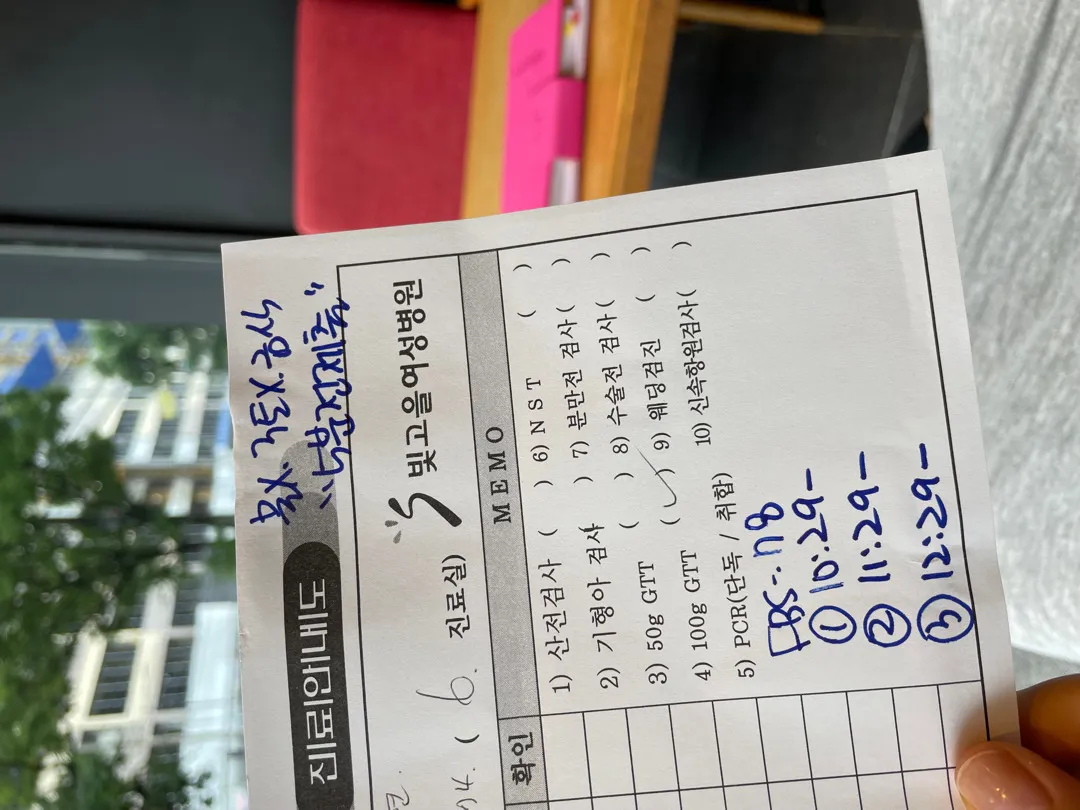 복X. 거동X. 금식
"누운김제출"
진료안내도
빛고을여성병원
( 6. 진료실)
확인
MEMO
1) 산전검사 ( )
2) 기형아 검사 ( )
3) 50g GTT ( )
4) 100g GTT (✓)
5) PCR(단독 / 취합)
6) N S T ( )
7) 분만전 검사( )
8) 수술전 검사( )
9) 웨딩검진 ( )
10) 신속항원검사( )
FBS-. 78
① 10:29-
② 11:29-
③ 12:29-